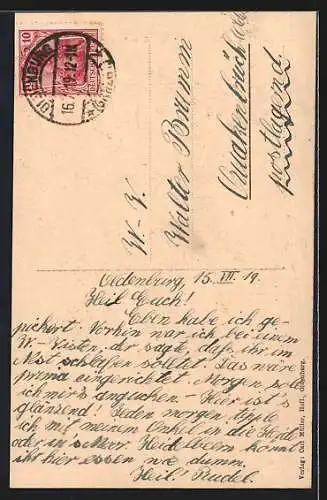 OLDENBURG
16.7.19. 12-1N.
10
W.-V.
Walter Bramm
Quakenbrück
postlagernd
Oldenburg, 15. VII. 19.
Heil Euch!
Eben habe ich ge-
pickert. Vorhin war ich bei einem
W-V-isten, der sagte, daß ihr im
Nest schlafen solltet. Das wäre
prima eingerichtet. Morgen soll
ich mir's anguchen. – Hier ist's
glänzend! Jeden morgen tipple
ich mit meinem Onkel in die Heide
oder in's Moor. Heidelbeern könnt
ihr hier essen wie dumm.
Heil! Rudel.
Verlag: Carl Müller, Hofl., Oldenburg.